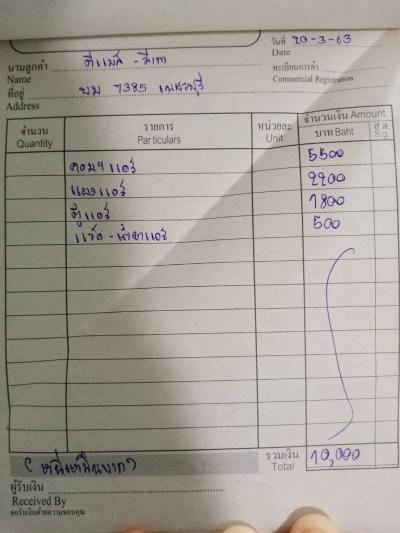 วันที่ 20-3-63
Date
นามลูกค้า ดีแม็ก - สีเทา
Name
ทะเบียนการค้า
Commercial Registration
ที่อยู่ บม 7385 เพชรบุรี
Address
จำนวน รายการ หน่วยละ จำนวนเงิน Amount
Quantity Particulars Unit บาท Baht ส.ต. Stg.
คอมฯแอร์ 5500
แผงแอร์ 2200
ตู้แอร์ 1800
แว็ค - น้ำยาแอร์ 500
(หนึ่งหมื่นบาท) รวมเงิน 10,000
Total
ผู้รับเงิน
Received By
ขอรับเงินด้วยความขอบคุณ